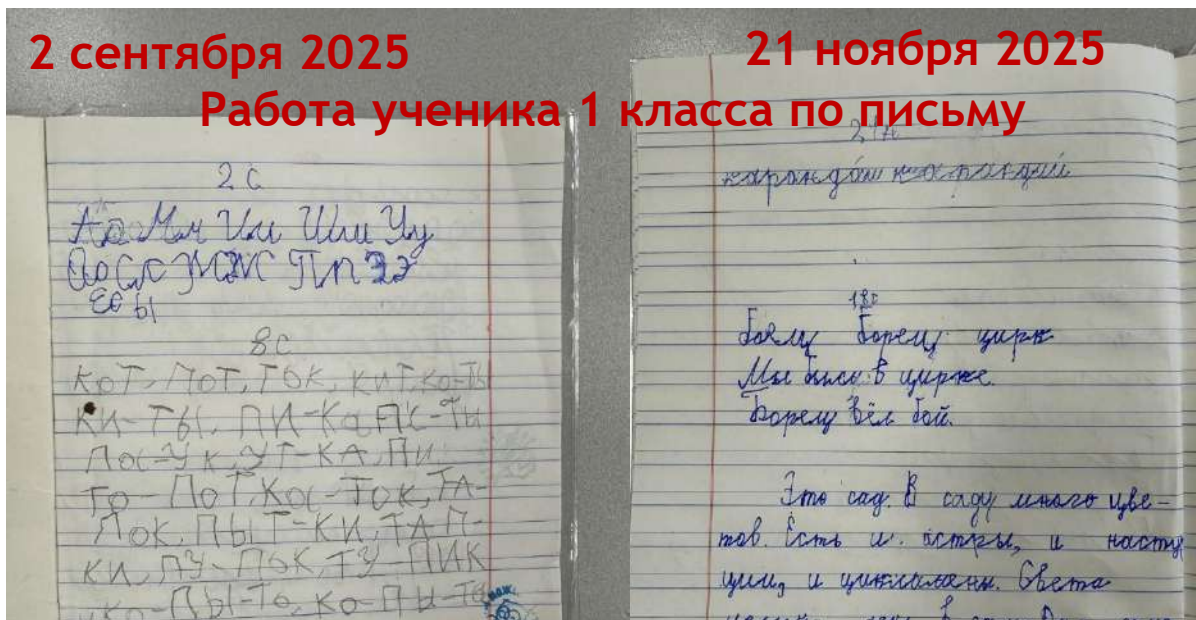 2 сентября 2025
21 ноября 2025
Работа ученика 1 класса по письму
2 с
Аа Мм Ии Шш Уу
Оо Сс Жж Пп Ээ
Ее ы
8 с
КоТ, ПоТ, ТоК, киТ, ко-Ты
Ки-Ты, ПИ-Ка
Ло-, УТ-КА, Пи
То-ПоТ, Кос-Ток, ТА-
ПоК, ПЫТ-КИ, ТАП-
КИ, ПУ-ПоК, ТУ-ПИК
карандаш
18с
боец борец цирк
Мы были в цирке.
Борец вёл бой.
Это сад. В саду много цве-
тов. Есть и астры, и насту
ции, и цикламены. Света